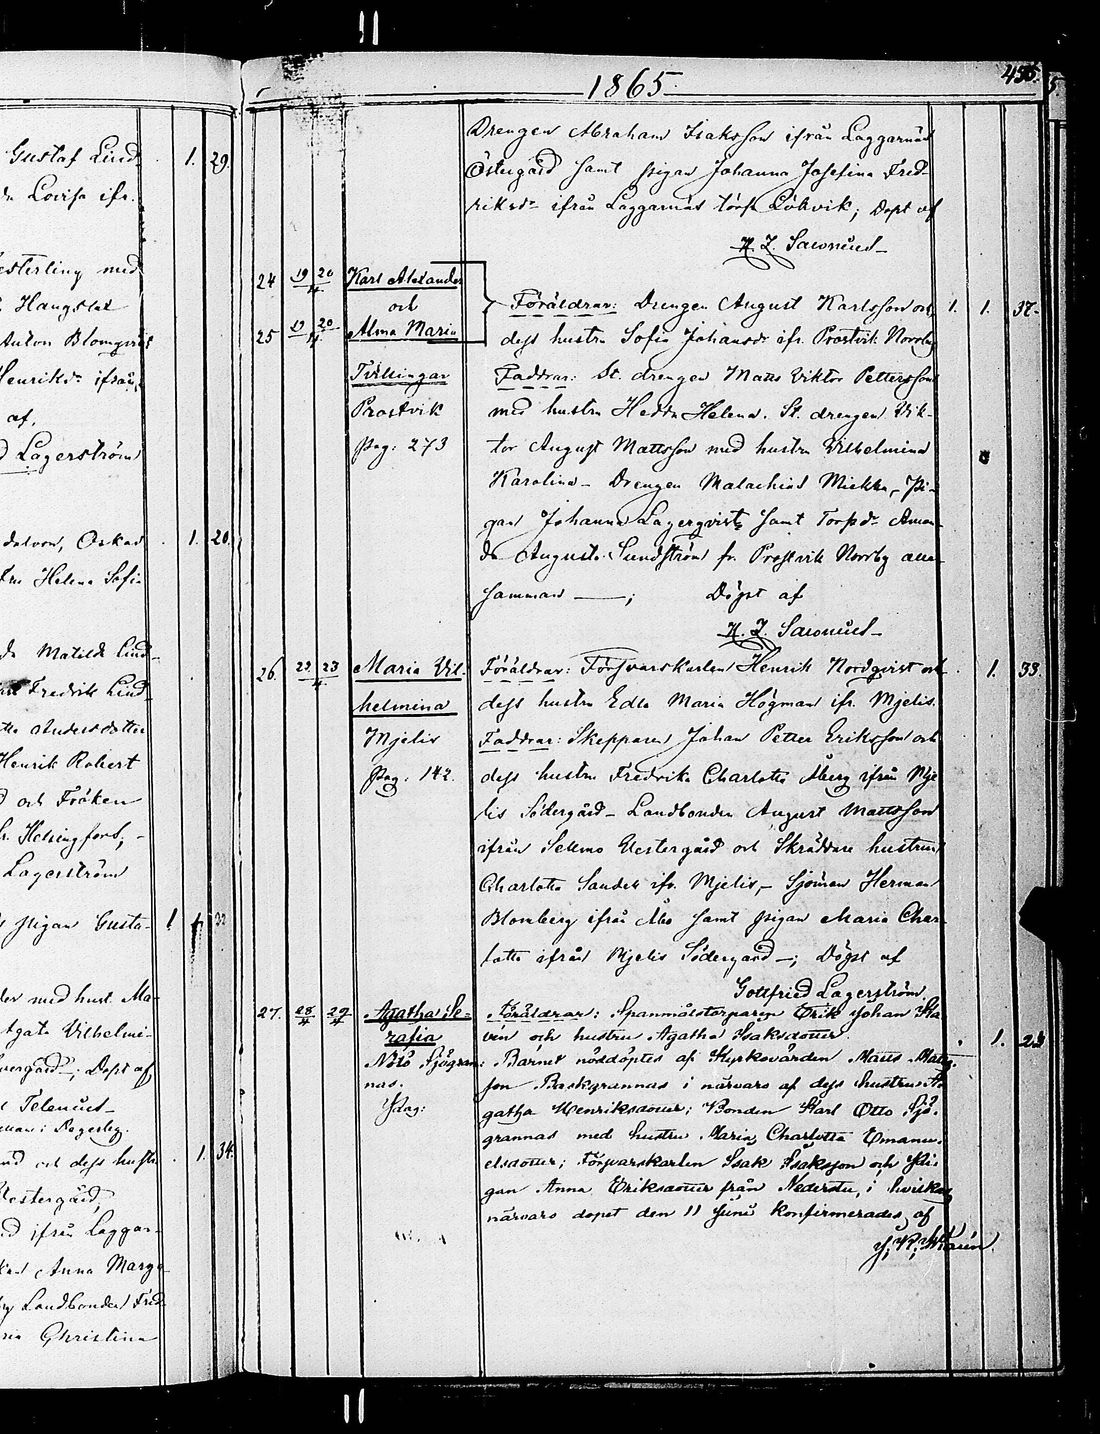 Gustaf Lind 1. 29
Lovisa ifr.
med
Hangslax
Anton Blomqvist
Henriksdr ifrån
af,
Lagerström
Oskar 1. 20.
Helena Sofia
Matilda Lind-
Fredrik Lind-
Andersdotter
Henrik Robert
och Fröken
fr. Helsingfors,-
Lagerström
pigan Gusta- 1 1 32
med hust. Ma-
Agata Vilhelmi-
Döpt af
Telenius-
och dess hustru 1. 34.
Vestergård,
ifrån Laggar-
Anna Marga-
Landbonden Fred-
Christina
1865. 455
Drengen Abraham Isaksson ifrån Laggarnäs
Östergård samt pigan Johanna Josefina Fred-
riksdr ifrån Laggarnäs torp Löhvik; Döpt af
K. L. Sawonius-
24 19/4 20/4 Karl Alexander
och
25 19/4 20/4 Alma Maria
Tvillingar
Prostvik
Pag: 273
Föräldrar: Drengen August Karlsson och 1. 1. 37.
dess hustru Sofia Johansdr ifr. Prostvik Norrby
Faddrar: St. drengen Matts Viktor Pettersson
med hustru Hedda Helena. St. drengen Vik-
tor August Mattsson med hustru Vilhelmina
Karolina- Drengen Malachias Miekka,- Pi-
gan Johanna Lagerqvist, samt Torpdr Aman-
da Augusta Sundström fr. Prostvik Norrby alla
samman ——; Döpt af
K. L. Sawonius-
26. 22/4 23/4 Maria Vil-
helmina
Mjelis
Pag. 142.
Föräldrar: Försvarskarlen Henrik Nordqvist och 1. 33.
dess hustru Edla Maria Högman ifr. Mjelis.
Faddrar: Skepparen Johan Petter Eriksson och
dess hustru Fredrika Charlotta Åberg ifrån Mje-
lis Södergård- Landbonden August Mattsson
ifrån Sellmo Vestergård och Skräddare hustrun
Charlotta Sandell ifr. Mjelis,- Sjöman Herman
Blomberg ifrån Åbo samt pigan Maria Char-
lotta ifrån Mjelis Södergård-; Döpt af
Gottfried Lagerström
27. 28/4 29/4 Agatha Se-
rafia
Nötö Sjögran-
nas.
Pag:
Föräldrar: Spanmålstorparen Erik Johan Sta-
vén och hustru Agatha Isaksdotter. 1. 23
Barnet nöddöptes af Kyrkovärden Matts Matts-
son Baskgrannas i närvaro af dess hustru A-
gatha Henriksdotter; Bonden Karl Otto Sjö-
grannas med hustru Maria Charlotta Emanu-
elsdotter; Försvarskarlen Isak Isaksson och Pi-
gan Anna Eriksdotter från Nederstu, i hvilkas
närvaro dopet den 11 Juni konfirmerades af